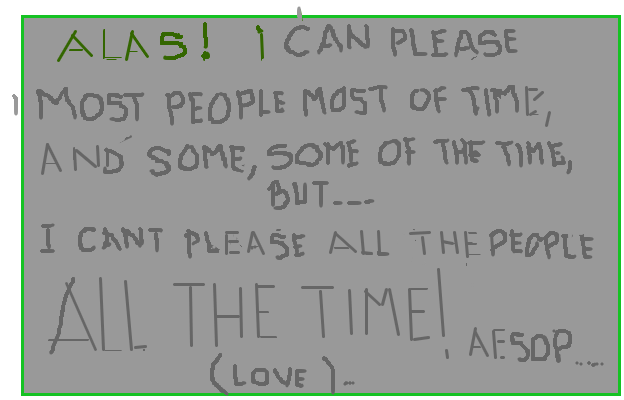 ALAS! I CAN PLEASE
MOST PEOPLE MOST OF TIME,
AND SOME, SOME OF THE TIME,
BUT....
I CANT PLEASE ALL THE PEOPLE
ALL THE TIME!
AESOP.....
(LOVE)..